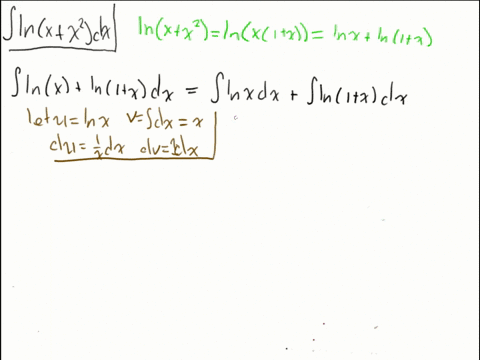 ∫ln(x+x²)dx ln(x+x²)=ln(x(1+x))=lnx+ln(1+x)
∫ln(x)+ln(1+x)dx = ∫lnxdx+∫ln(1+x)dx
let u=lnx v=∫dx=x
du=1/x dx dv=1dx